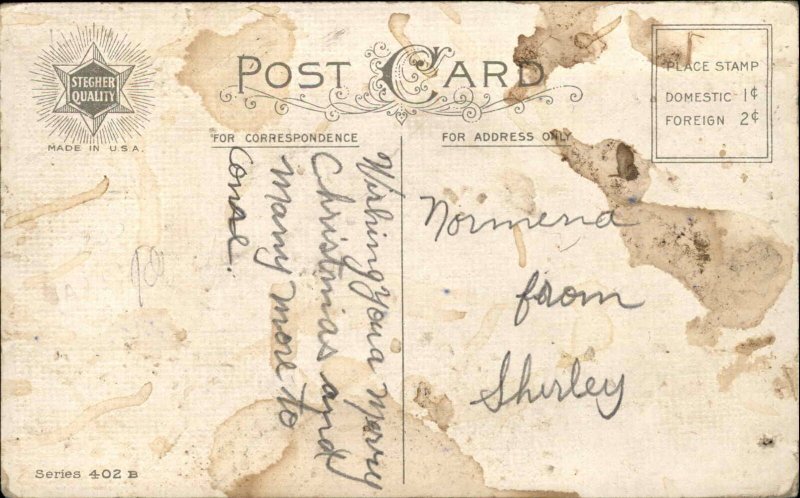 POST CARD
STEGHER
QUALITY
MADE IN U.S.A.
FOR CORRESPONDENCE
FOR ADDRESS ONLY
PLACE STAMP
DOMESTIC 1¢
FOREIGN 2¢
Wishing you a Merry
Christmas and
many more to
come.
Normena
from
Shirley
Series 402 B